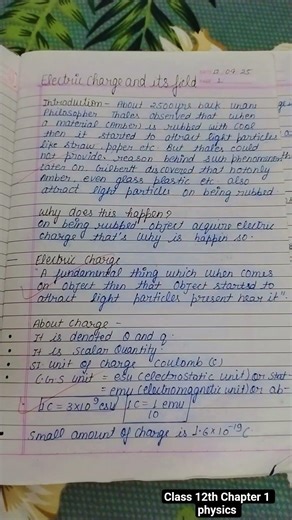 12.04.25
1
Electric Charge and its field
Introduction - About 2500 yrs back
Philosopher Thales observed that when
a material (amber) is rubbed with wool
then it started to attract light particles
like straw, paper etc. But thales could
not provide reason behind such phenomenon
later on Gilbert discovered that not only
amber even glass plastic etc also
attract light particles on being rubbed
Why does this happen?
On being rubbed object acquire electric
charge that's why is happen so.
Electric Charge
"A fundamental thing which when comes
on object then that object started to
attract light particles present near it"
About Charge -
It is denoted Q and q.
It is scalar Quantity.
SI unit of charge (Coulomb (C)
C.G.S unit = esu (electrostatic unit) or stat-
= emu (electromagnetic unit) or ab-
1C = 3x10⁹esu 1C = 1/10 emu
Small amount of charge is 1.6x10⁻¹⁹C
Class 12th Chapter 1
physics